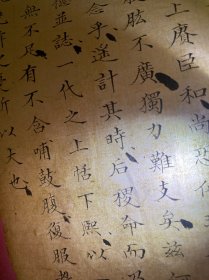 上賡臣和尚
肱不廣獨力難支矣茲
念乎遙計其時后稷命而
極並誌一代之上恬下熙以
無不足有不含哺鼓腹復服
所以大也